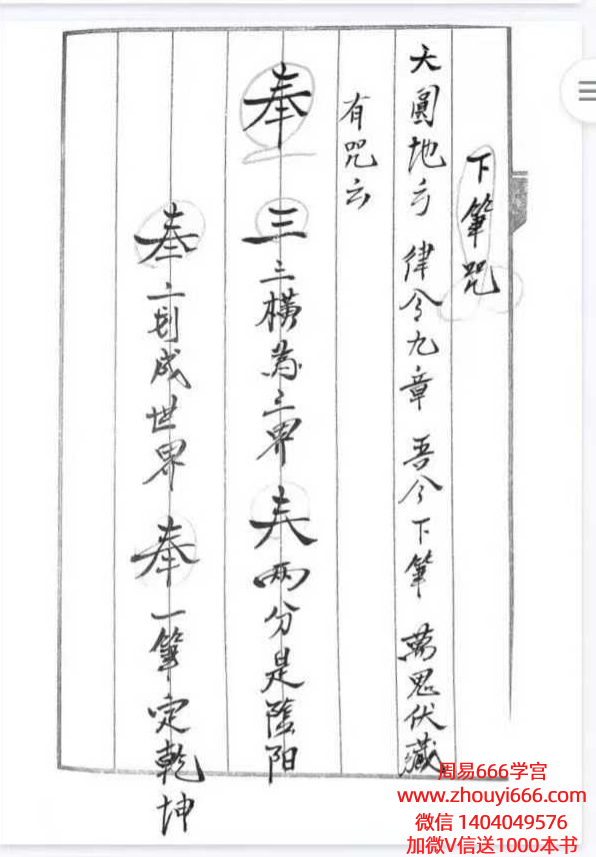 下筆咒
天圓地方 律令九章 吾今下筆 萬鬼伏藏
有咒云
奉 三 三橫為三界 𡗗 両分是陰陽
奉 二划成世界 奉 一筆定乾坤
周易666学宫
www.zhouyi666.com
微信 1404049576
加微V信送1000本书